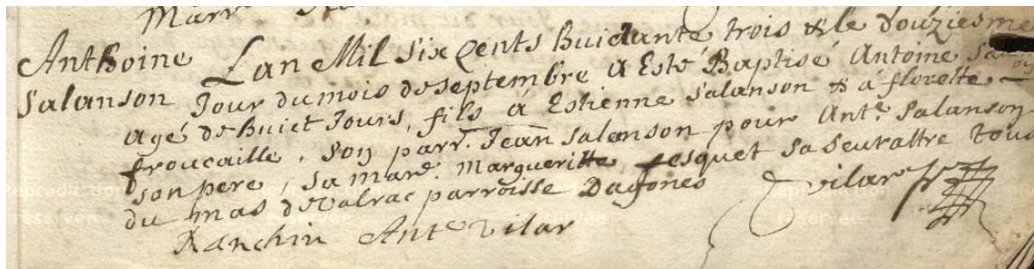 Marr
Anthoine Salanson
Lan Mil six cents huictante trois & le douziesme
Jour du mois de septembre a Esté Baptisé Antoine
agé de huict Jours, fils à Estienne Salanson & à florette
froucaille, son parr. Jean Salanson pour Ant.e Salanson
son pere, sa mar.e Margueritte fesquet sa seur attre tous
du mas de Valrac parroisse Dagones Vilar
Ranchin Ant.e Vilar